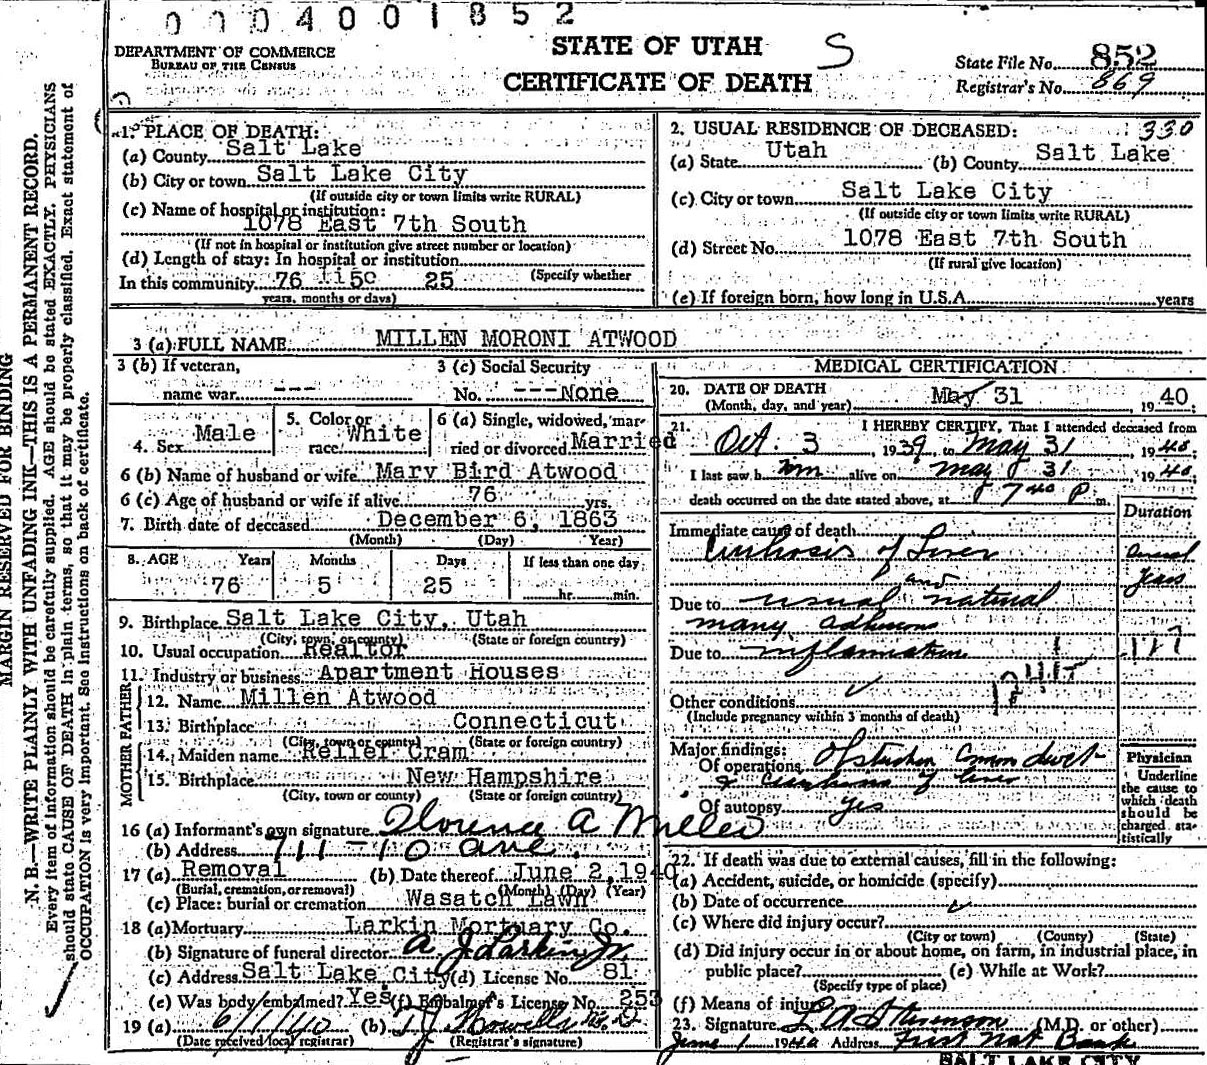 0004001852
DEPARTMENT OF COMMERCE
BUREAU OF THE CENSUS
STATE OF UTAH
CERTIFICATE OF DEATH
S
State File No. 852
Registrar's No. 869
MARGIN RESERVED FOR BINDING
N. B.—WRITE PLAINLY WITH UNFADING INK—THIS IS A PERMANENT RECORD.
Every item of information should be carefully supplied. AGE should be stated EXACTLY. PHYSICIANS
should state CAUSE OF DEATH in plain terms, so that it may be properly classified. Exact statement of
OCCUPATION is very important. See instructions on back of certificate.
1. PLACE OF DEATH:
(a) County Salt Lake
(b) City or town Salt Lake City
(If outside city or town limits write RURAL)
(c) Name of hospital or institution:
1078 East 7th South
(If not in hospital or institution give street number or location)
(d) Length of stay: In hospital or institution
(Specify whether
In this community 76 25
years, months or days)
2. USUAL RESIDENCE OF DECEASED: 330
(a) State Utah (b) County Salt Lake
(c) City or town Salt Lake City
(If outside city or town limits write RURAL)
(d) Street No. 1078 East 7th South
(If rural give location)
(e) If foreign born, how long in U.S.A. years
3 (a) FULL NAME MILLEN MORONI ATWOOD
3 (b) If veteran,
name war ---
3 (c) Social Security
No. ---None
4. Sex Male
5. Color or
race White
6 (a) Single, widowed, mar-
ried or divorced Married
6 (b) Name of husband or wife Mary Bird Atwood
6 (c) Age of husband or wife if alive 76 yrs.
7. Birth date of deceased December 6, 1863
(Month) (Day) Year)
8. AGE Years Months Days If less than one day
76 5 25 hr. min.
9. Birthplace Salt Lake City, Utah
(City, town, or county) (State or foreign country)
10. Usual occupation Realtor
11. Industry or business Apartment Houses
FATHER
12. Name Millen Atwood
13. Birthplace Connecticut
(City, town or county) (State or foreign country)
MOTHER
14. Maiden name Relief Cram
15. Birthplace New Hampshire
(City, town or county) (State or foreign country)
16 (a) Informant's own signature Florence A Miller
(b) Address 711 - 10 ave.
17 (a) Removal (b) Date thereof June 2, 1940
(Burial, cremation, or removal) (Month) (Day) (Year)
(c) Place: burial or cremation Wasatch Lawn
18 (a) Mortuary Larkin Mortuary Co.
(b) Signature of funeral director A. J. Larkin Jr.
(c) Address Salt Lake City (d) License No. 81
(e) Was body embalmed? Yes (f) Embalmer's License No. 253
19 (a) 6/1/40 (b) T J Howells
(Date received local registrar) (Registrar's signature)
MEDICAL CERTIFICATION
20. DATE OF DEATH
(Month, day, and year) May 31, 1940
21. I HEREBY CERTIFY, That I attended deceased from
Oct. 3, 1939, to May 31, 1940.
I last saw him alive on May 31, 1940
death occurred on the date stated above, at 7 40 P m.
Duration
Immediate cause of death
Cirrhosis of Liver
years
and
Due to usual natural
many adhesions
Due to inflammation
Other conditions
(Include pregnancy within 3 months of death)
Major findings:
Of operations Common duct
& cirrhosis of liver
Of autopsy Yes
Physician
Underline
the cause to
which death
should be
charged sta-
tistically
22. If death was due to external causes, fill in the following:
(a) Accident, suicide, or homicide (specify)
(b) Date of occurrence
(c) Where did injury occur?
(City or town) (County) (State)
(d) Did injury occur in or about home, on farm, in industrial place, in
public place? (e) While at Work?
(Specify type of place)
(f) Means of injury
23. Signature L A Stevenson (M.D. or other)
June 1 1940 Address First Nat Bank
SALT LAKE CITY